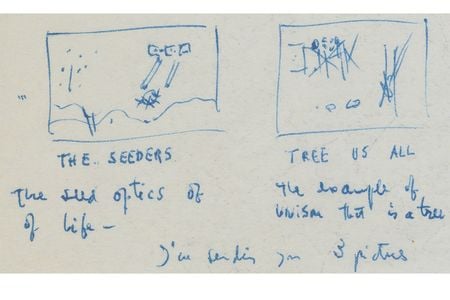 THE SEEDERS
TREE US ALL
The seed optics of
of life –
The example of
unism that is a tree
I'm sending you 3 pictures